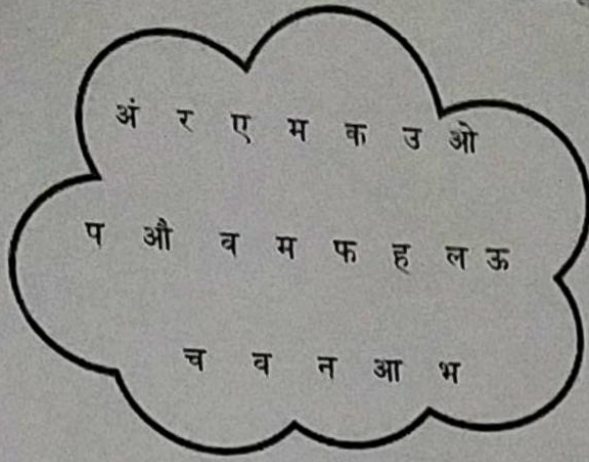 अं र ए म क उ ओ
प औ व म फ ह ल ऊ
च व न आ भ